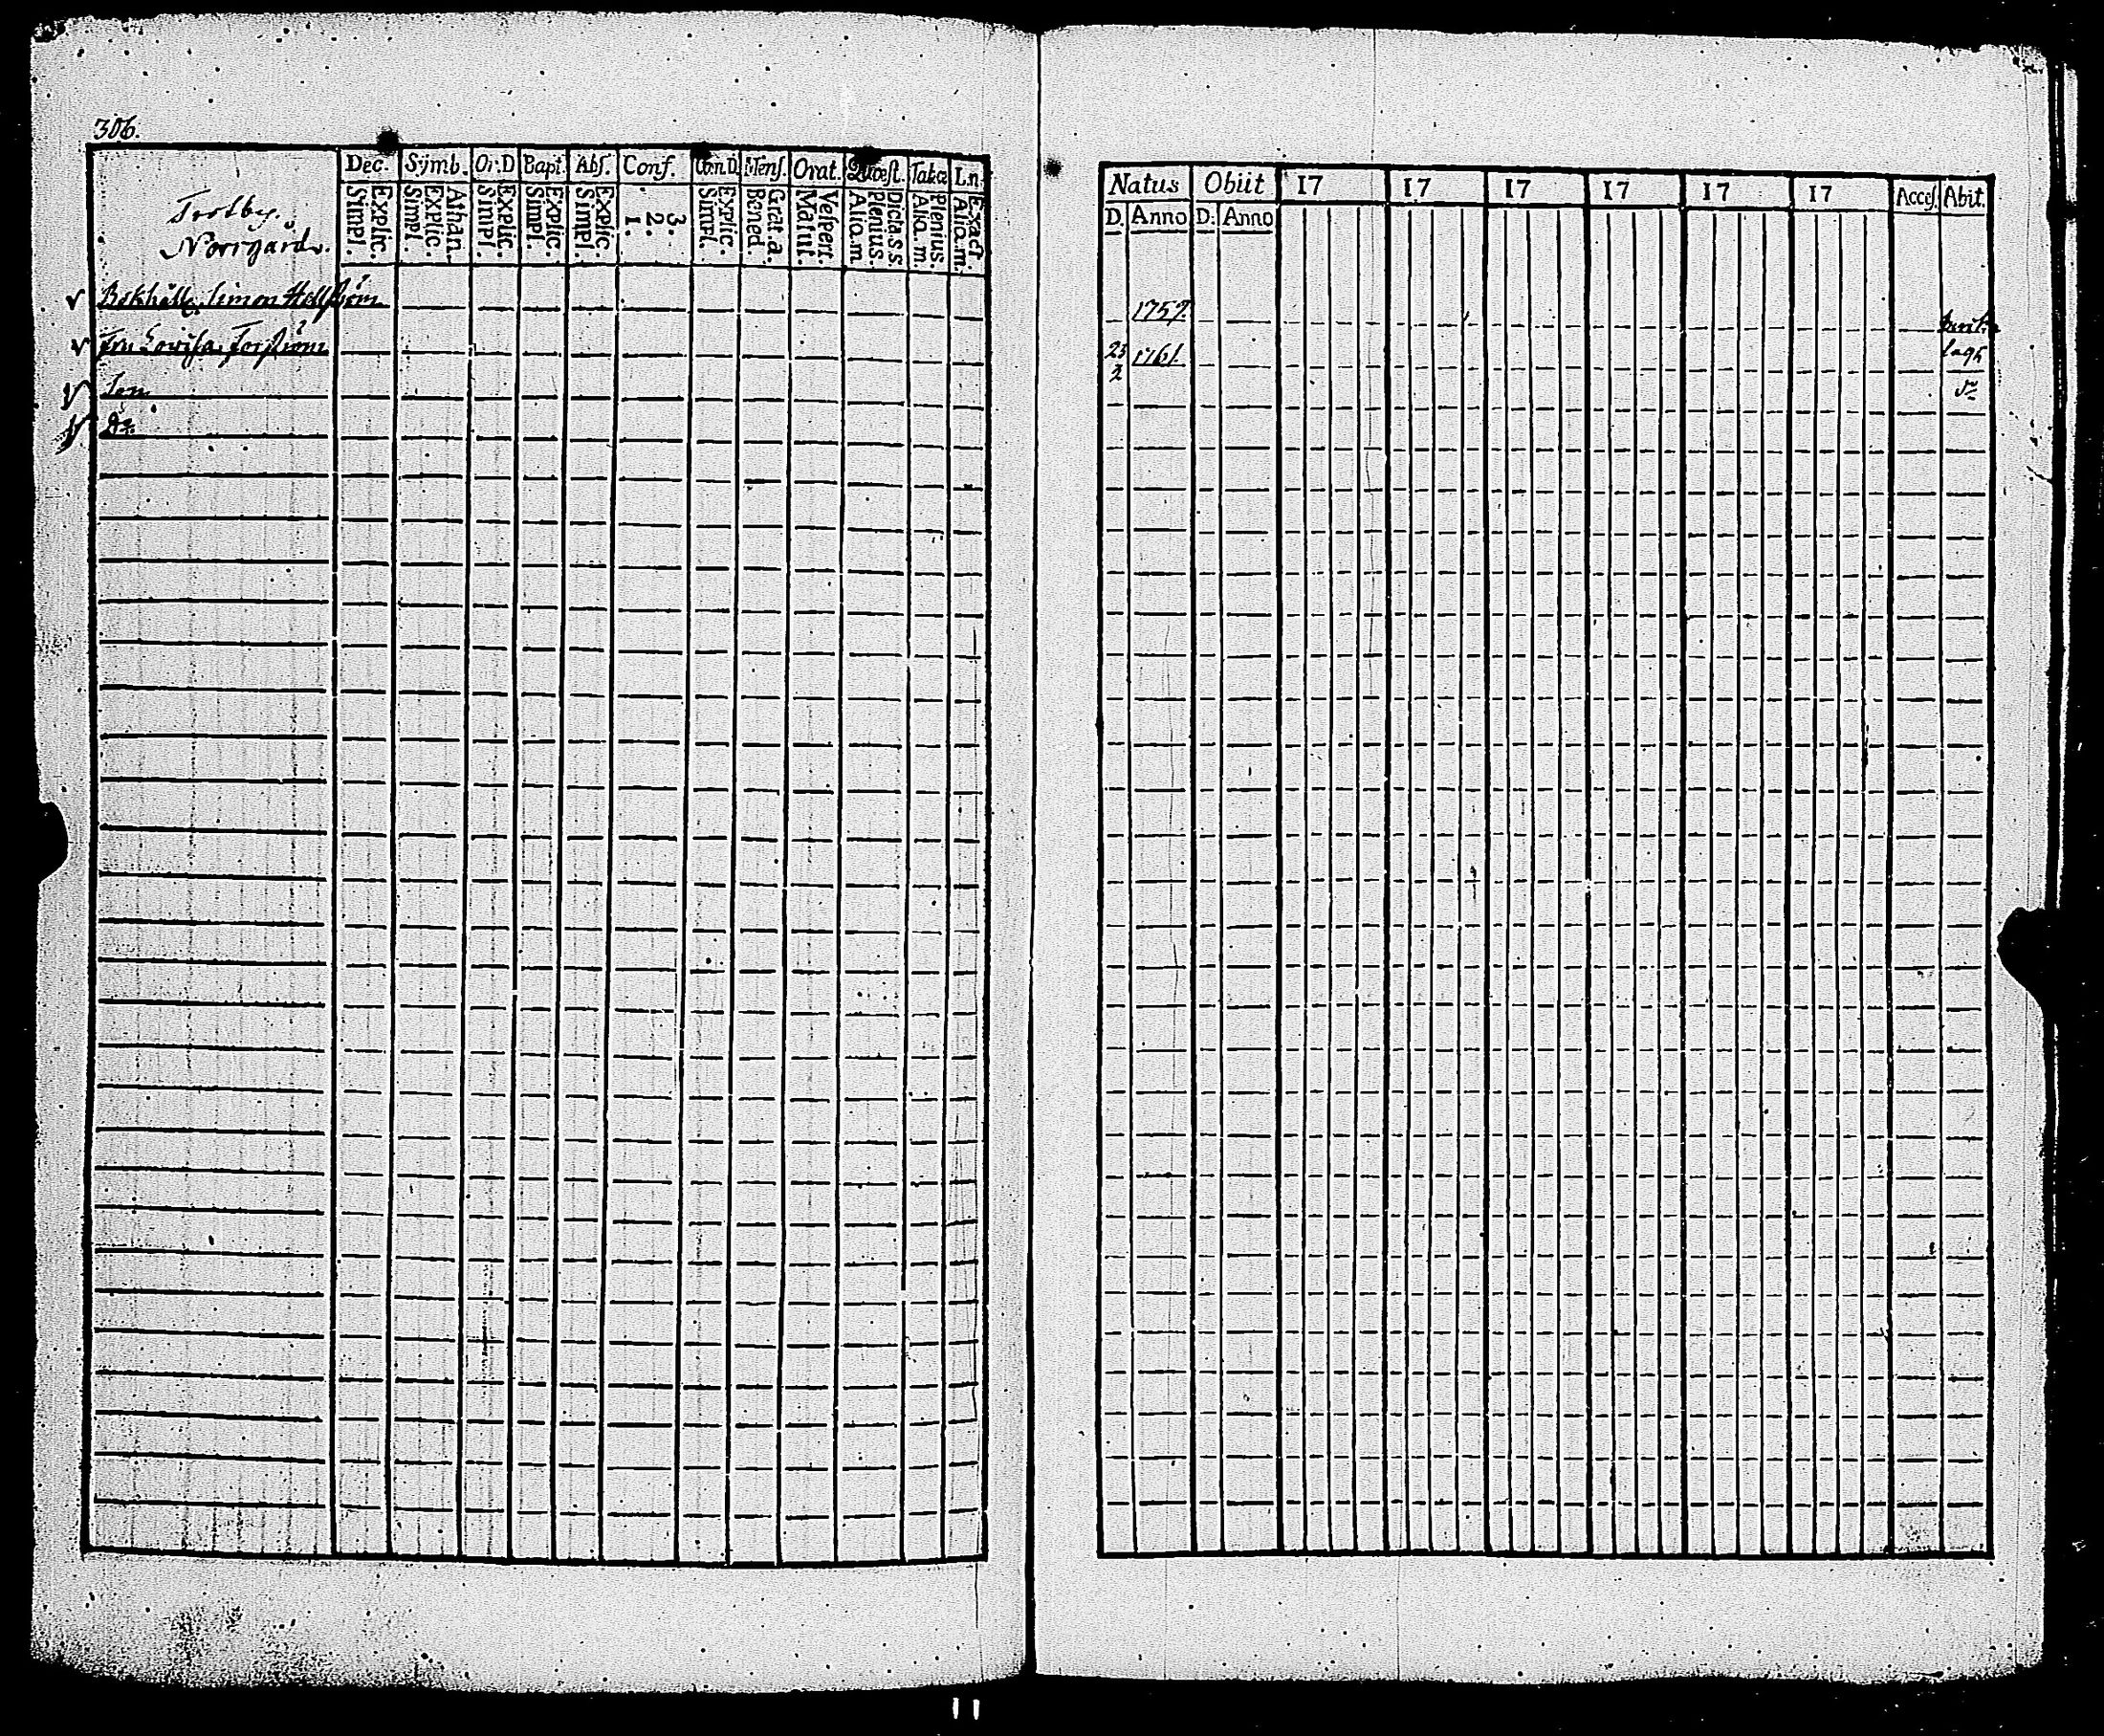 306.
Dec. Symb. Or.D Bapt. Abſ. Conf. Can.D Menſ. Orat. Quæſt. Tabæ Ln.
Explic. Simpl. Athan. Explic. Simpl. Explic. Simpl. Explic. Simpl. Explic. Simpl. 3. 2. 1. Explic. Simpl. Grat.a. Bened. Veſpert. Matut. Dicta.s.s. Plenius. Aliq.m. Plenius. Aliq.m. Exact. Aliq.m.
Norrgårds.
Bokhåll. Simon Hellström
Fru Lovisa Forström
Do
Natus Obiit 17 17 17 17 17 17 Acceſ. Abit.
D. Anno D. Anno
1757.
23/2 1761.